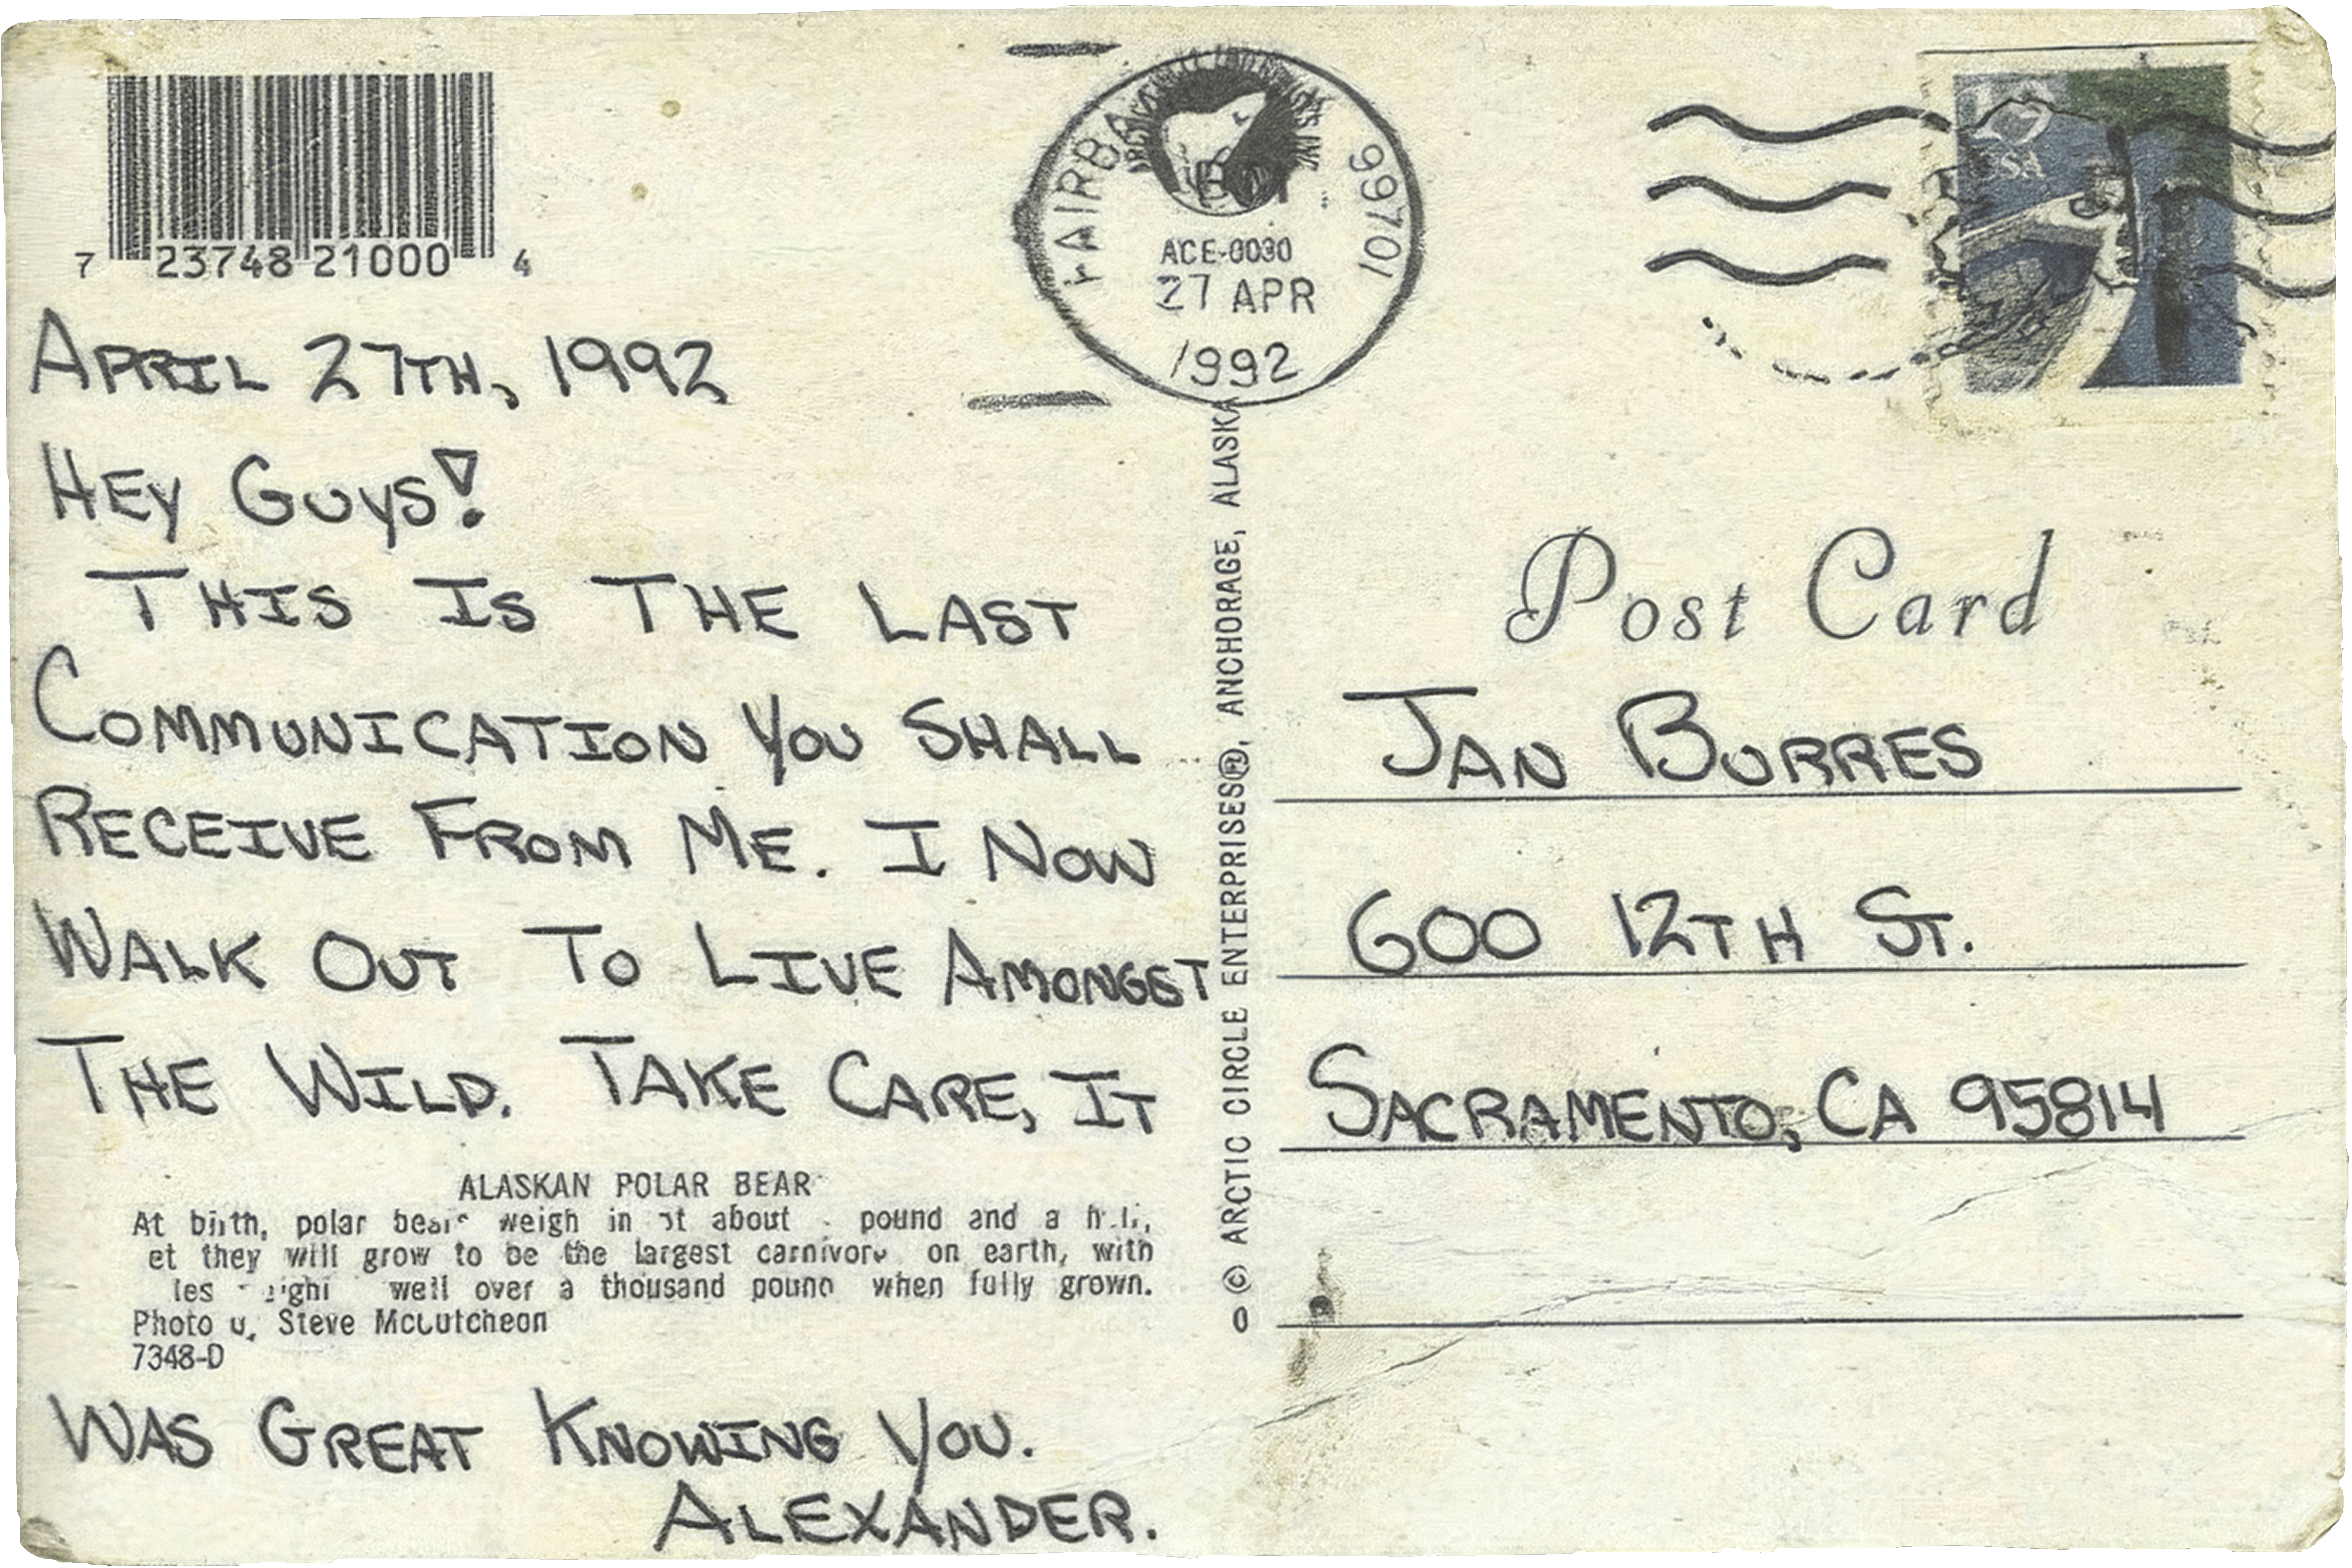 7 23748 21000 4
99701
ACE-0030
27 APR
1992
USA
APRIL 27TH, 1992
HEY GUYS!
THIS IS THE LAST
COMMUNICATION YOU SHALL
RECEIVE FROM ME. I NOW
WALK OUT TO LIVE AMONGST
THE WILD. TAKE CARE, IT
ALASKAN POLAR BEAR
At birth, polar bears weigh in at about pound and a
they will grow to be the largest carnivore on earth, with
well over a thousand pound when fully grown.
Photo Steve McCutcheon
7348-D
WAS GREAT KNOWING YOU.
ALEXANDER.
© ARCTIC CIRCLE ENTERPRISES®, ANCHORAGE, ALASKA
Post Card
JAN BURRES
600 12TH ST.
SACRAMENTO, CA 95814